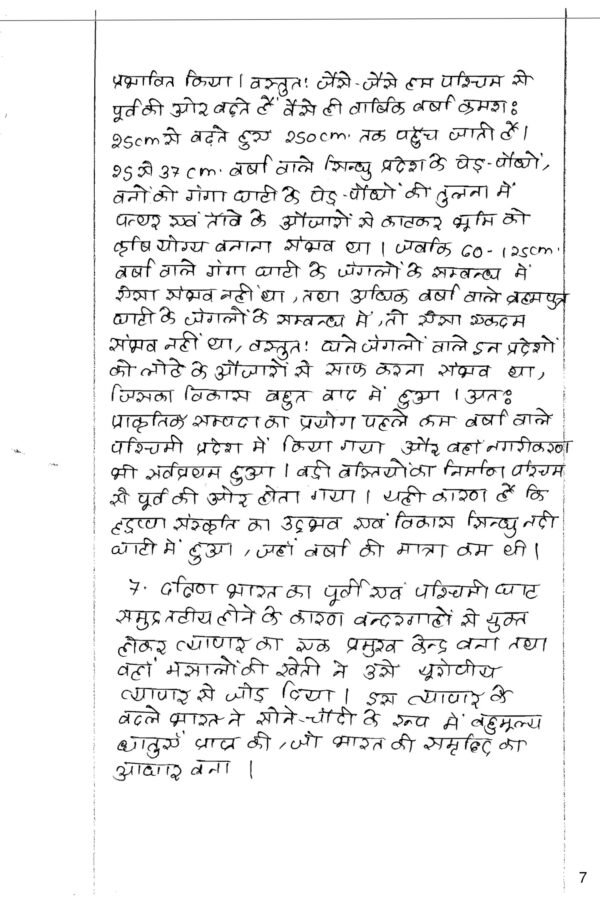 प्रभावित किया। वस्तुतः जैसे-जैसे हम पश्चिम से
पूर्व की ओर बढ़ते हैं वैसे ही वार्षिक वर्षा क्रमशः
25cm से बढ़ते हुए 250cm. तक पहुँच जाती है।
25 से 37 cm. वर्षा वाले सिन्धु प्रदेश के पेड़-पौधों,
वनों को गंगा घाटी के पेड़-पौधों की तुलना में
पत्थर एवं ताँबे के औजारों से काटकर भूमि को
कृषि योग्य बनाना संभव था। जबकि 60-125cm.
वर्षा वाले गंगा घाटी के जंगलों के सम्बन्ध में
ऐसा संभव नहीं था, तथा अधिक वर्षा वाले ब्रह्मपुत्र
घाटी के जंगलों के सम्बन्ध में, तो ऐसा एकदम
संभव नहीं था, वस्तुतः घने जंगलों वाले इन प्रदेशों
को लोहे के औजारों से साफ करना संभव था,
जिसका विकास बहुत बाद में हुआ। अतः
प्राकृतिक सम्पदा का प्रयोग पहले कम वर्षा वाले
पश्चिमी प्रदेश में किया गया और वहां नगरीकरण
भी सर्वप्रथम हुआ। बड़ी बस्तियों का निर्माण पश्चिम
से पूर्व की ओर होता गया। यही कारण है कि
हड़प्पा संस्कृति का उद्भव एवं विकास सिन्धु नदी
घाटी में हुआ, जहां वर्षा की मात्रा कम थी।
7. दक्षिण भारत का पूर्वी एवं पश्चिमी घाट
समुद्रतटीय होने के कारण बन्दरगाहों से युक्त
होकर व्यापार का एक प्रमुख केन्द्र बना तथा
वहां मसालों की खेती ने उसे यूरोपीय
व्यापार से जोड़ दिया। इस व्यापार के
बदले भारत ने सोने-चाँदी के रूप में बहुमूल्य
धातुएँ प्राप्त की, जो भारत की समृद्धि का
आधार बना।
7